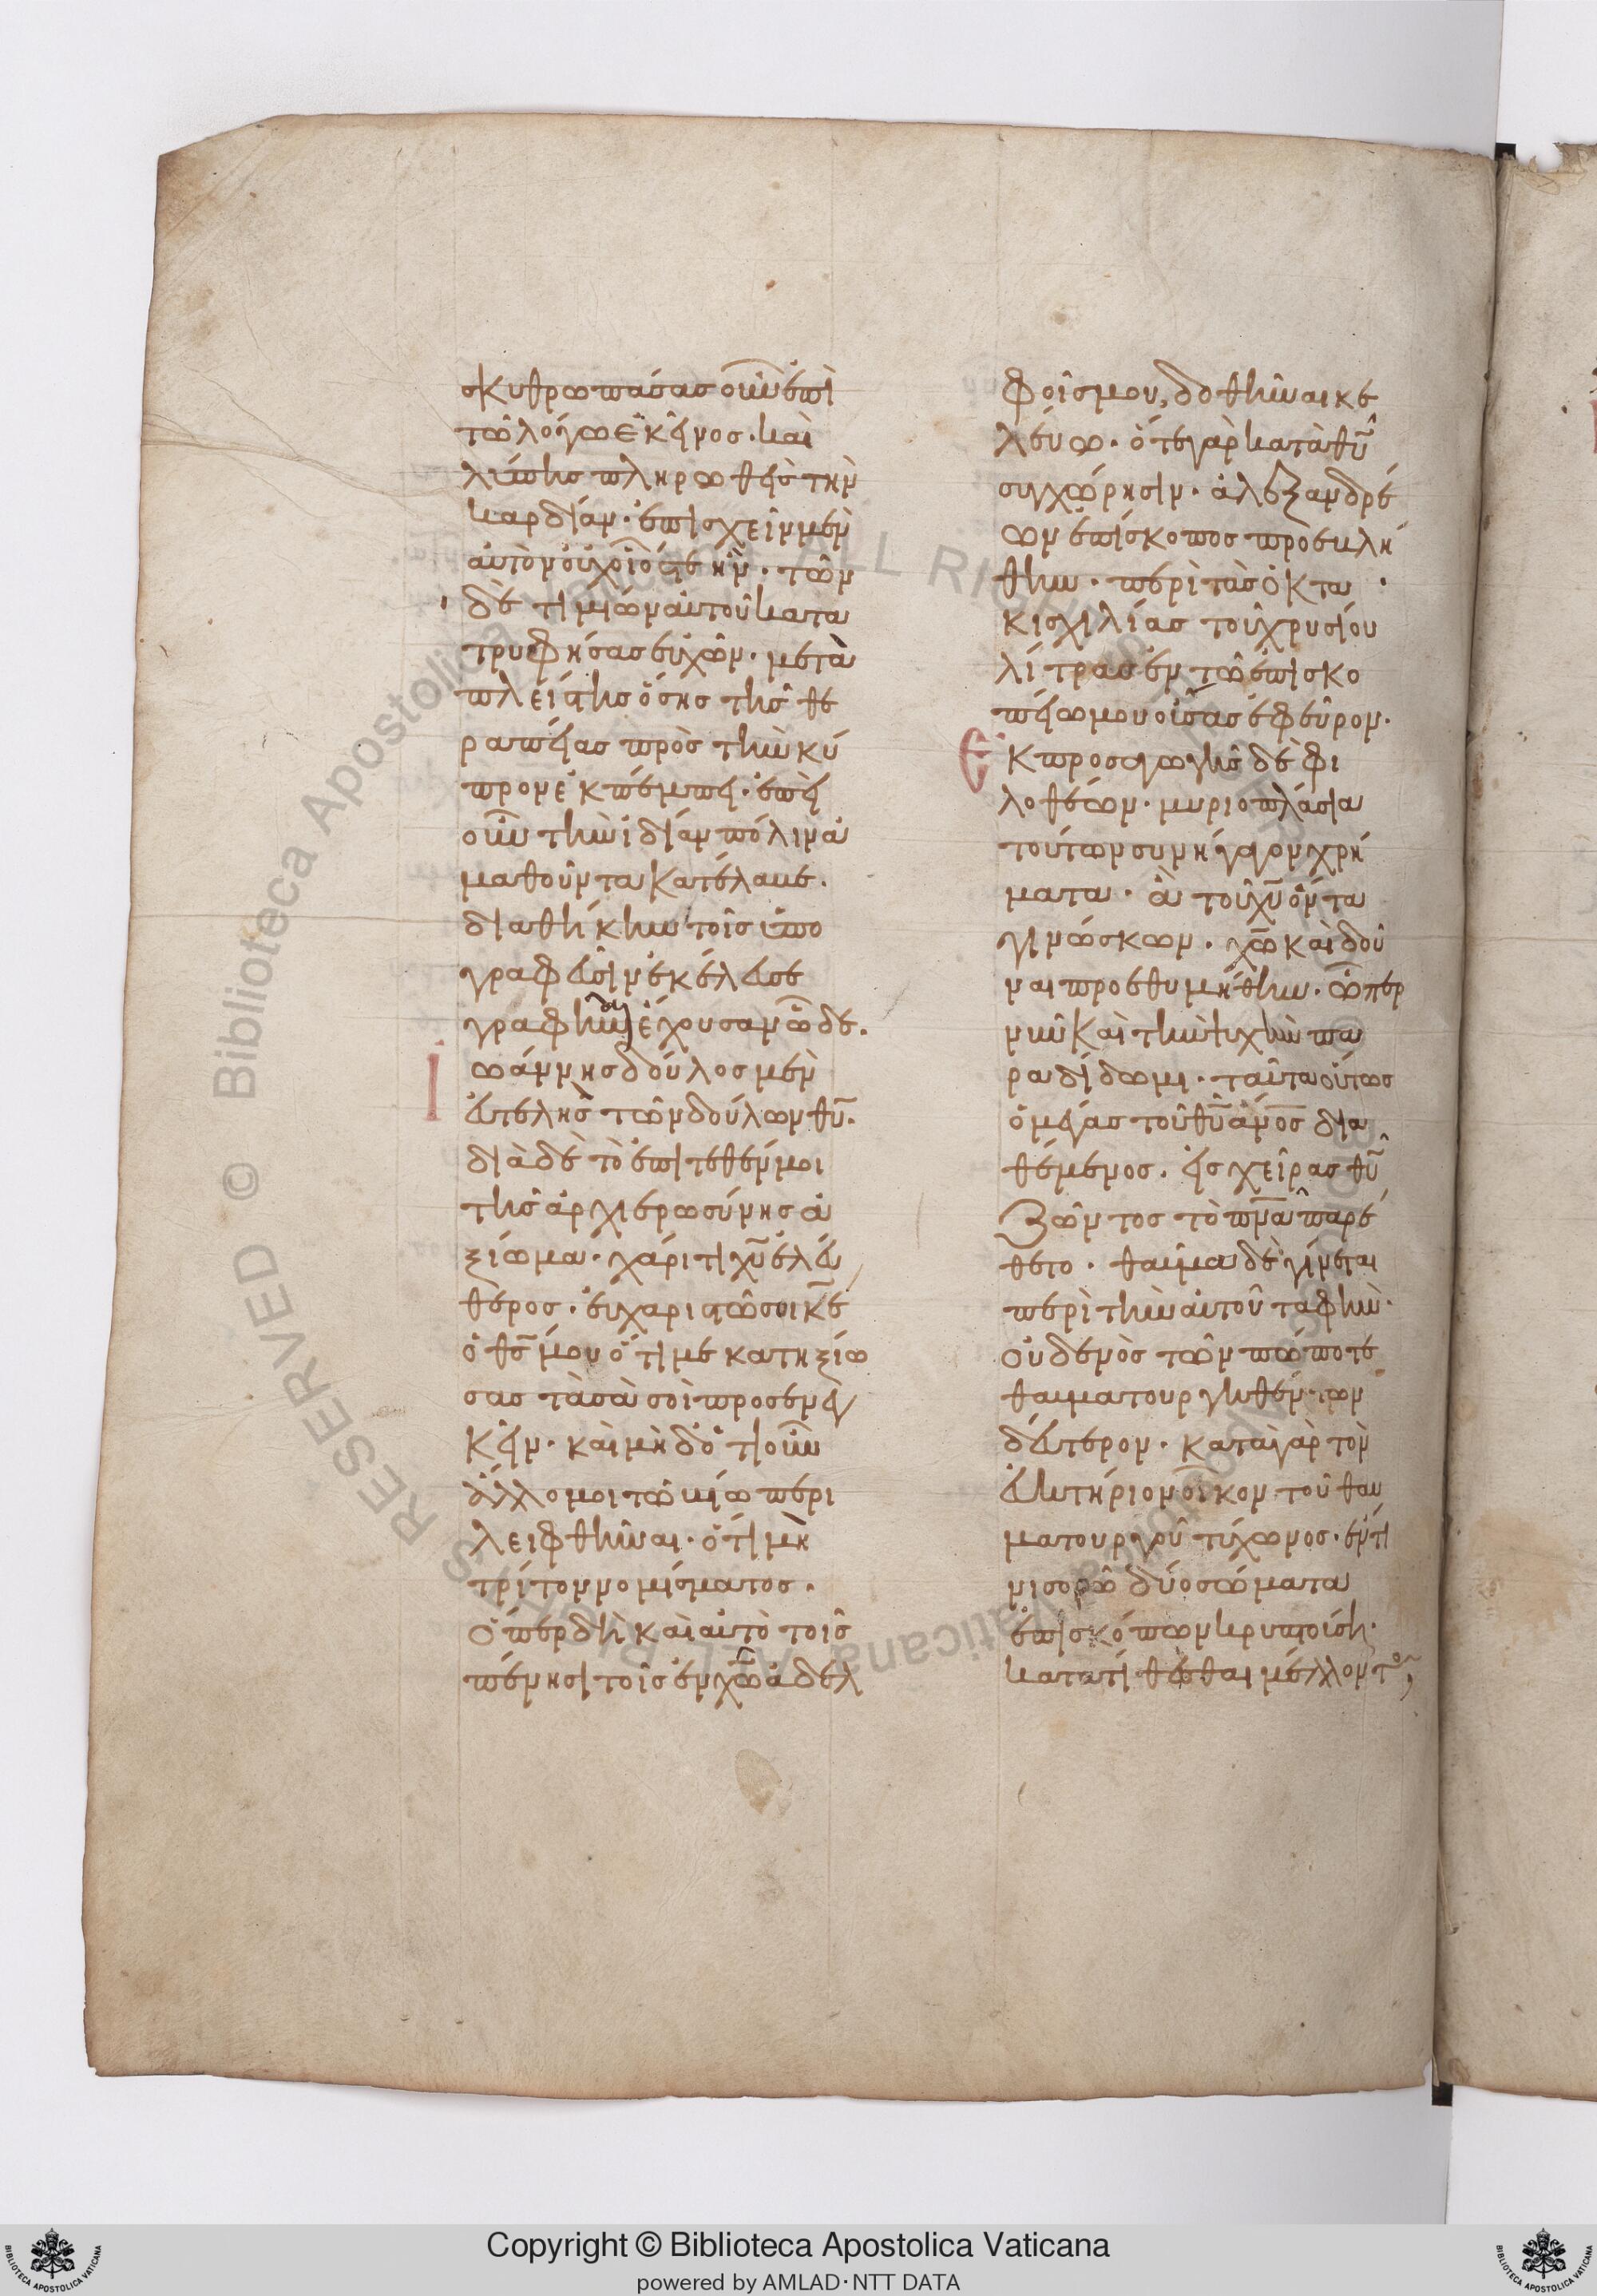 σκυθρωπάσας οὖν ἐπὶ
τῶ λόγω ἐκεῖνος· καὶ
λύπης πληρωθεὶς τὴν
καρδίαν· ἐπισχεῖν μὲν
αὐτὸν οὐχ οἷός τε ἦν· τῶν
δὲ τιμίων αὐτοῦ κατα
τρυφήσας εὐχῶν· μετὰ
πλείστης ὅσης τῆς θε
ραπείας πρὸς τὴν κύ
προν ἐκπέμπει· ἐπεὶ
οὖν τὴν ἰδίαν πόλιν ἀ
μαθοῦντα κατέλαβε·
διαθήκην τοῖς ὑπο
γραφεῦσιν ἐκέλευσε
γραφῆναι ἔχουσαν ὧδε·
Ἰωάννης δοῦλος μὲν
εὐτελὴς τῶν δούλων θυ·
διὰ δὲ τὸ ἐπιτεθέν μοι
τῆς ἀρχιερωσύνης ἀ
ξίωμα· χάριτι χυ ἐλεύ
θερος· εὐχαριστῶ σοι κε
ὁ θς μου ὅτι με κατηξίω
σας τὰ σὰ σοὶ προσενεγ
κεῖν· καὶ μηδ' ὁτιοῦν
ἄλλο μοι τῶ βίω περι
λειφθῆναι· ὅτι μὴ
τρίτον νομίσματος·
ὅπερ δὴ καὶ αὐτὸ τοῖς
πένησι τοῖς ἐν χω ἀδελ
φοῖς μου, δοθῆναι κε
λεύω· ὅτε γὰρ κατὰ θυ
συγχώρησιν· ἀλεξανδρέ
ων ἐπίσκοπος προεκλή
θην· περὶ τὰς ὀκτα
κισχιλίας τοῦ χρυσίου
λίτρας ἐν τῶ ἐπισκο
πείω μου οὔσας ἐφεῦρον·
Ἐκ προσαγωγῆς δὲ φι
λοθέων· μυριοπλάσια
τούτων συνήγαγον χρή
ματα· ἃ τοῦ χυ ὄντα
γινώσκων· χω καὶ δοῦ
ναι προεθυμήθην· ὧπερ
νῦν καὶ τὴν ψυχὴν πα
ραδίδωμι· ταῦτα οὕτως
ὁ μέγας τοῦ θυ ανος δια
θέμενος· εἰς χεῖρας θυ
ζῶντος τὸ πνα παρέ
θετο· θαῦμα δὲ γίνεται
περὶ τὴν αὐτοῦ ταφὴν·
οὐδενὸς τῶν πώποτε
θαυματουργηθέντων
δεύτερον· κατὰ γὰρ τὸν
εὐκτήριον οἶκον τοῦ θαυ
ματουργοῦ τύχωνος· ἔν τι
νι σορῶ δύο σώματα
ἐπισκόπων κρυπτοίση·
κατατίθεσθαι μέλλοντος